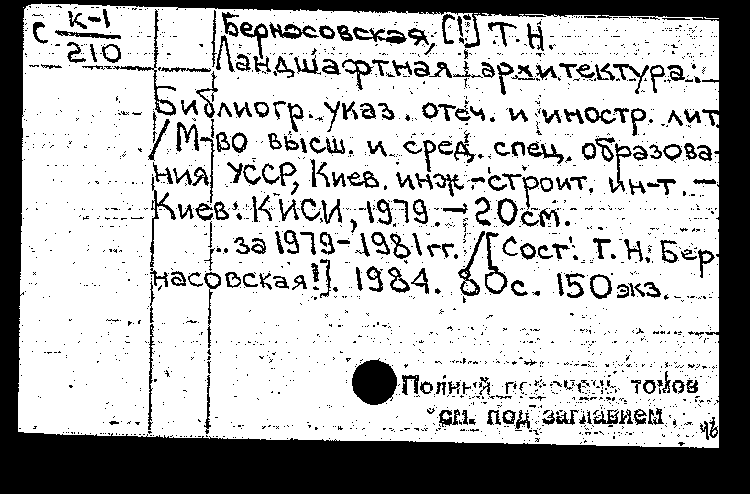 С К-1
210
Берносовская, [!] Т. Н.
Ландшафтная архитектура:
Библиогр. указ. отеч. и иностр. лит.
/ М-во высш. и сред. спец. образова-
ния УССР, Киев. инж.-строит. ин-т. —
Киев: КИСИ, 1979. — 20см.
..за 1979-1981гг. / [Сост. Т. Н. Бер-
насовская!]. 1984. 80с. 150экз.
Полный перечень томов
см. под заглавием